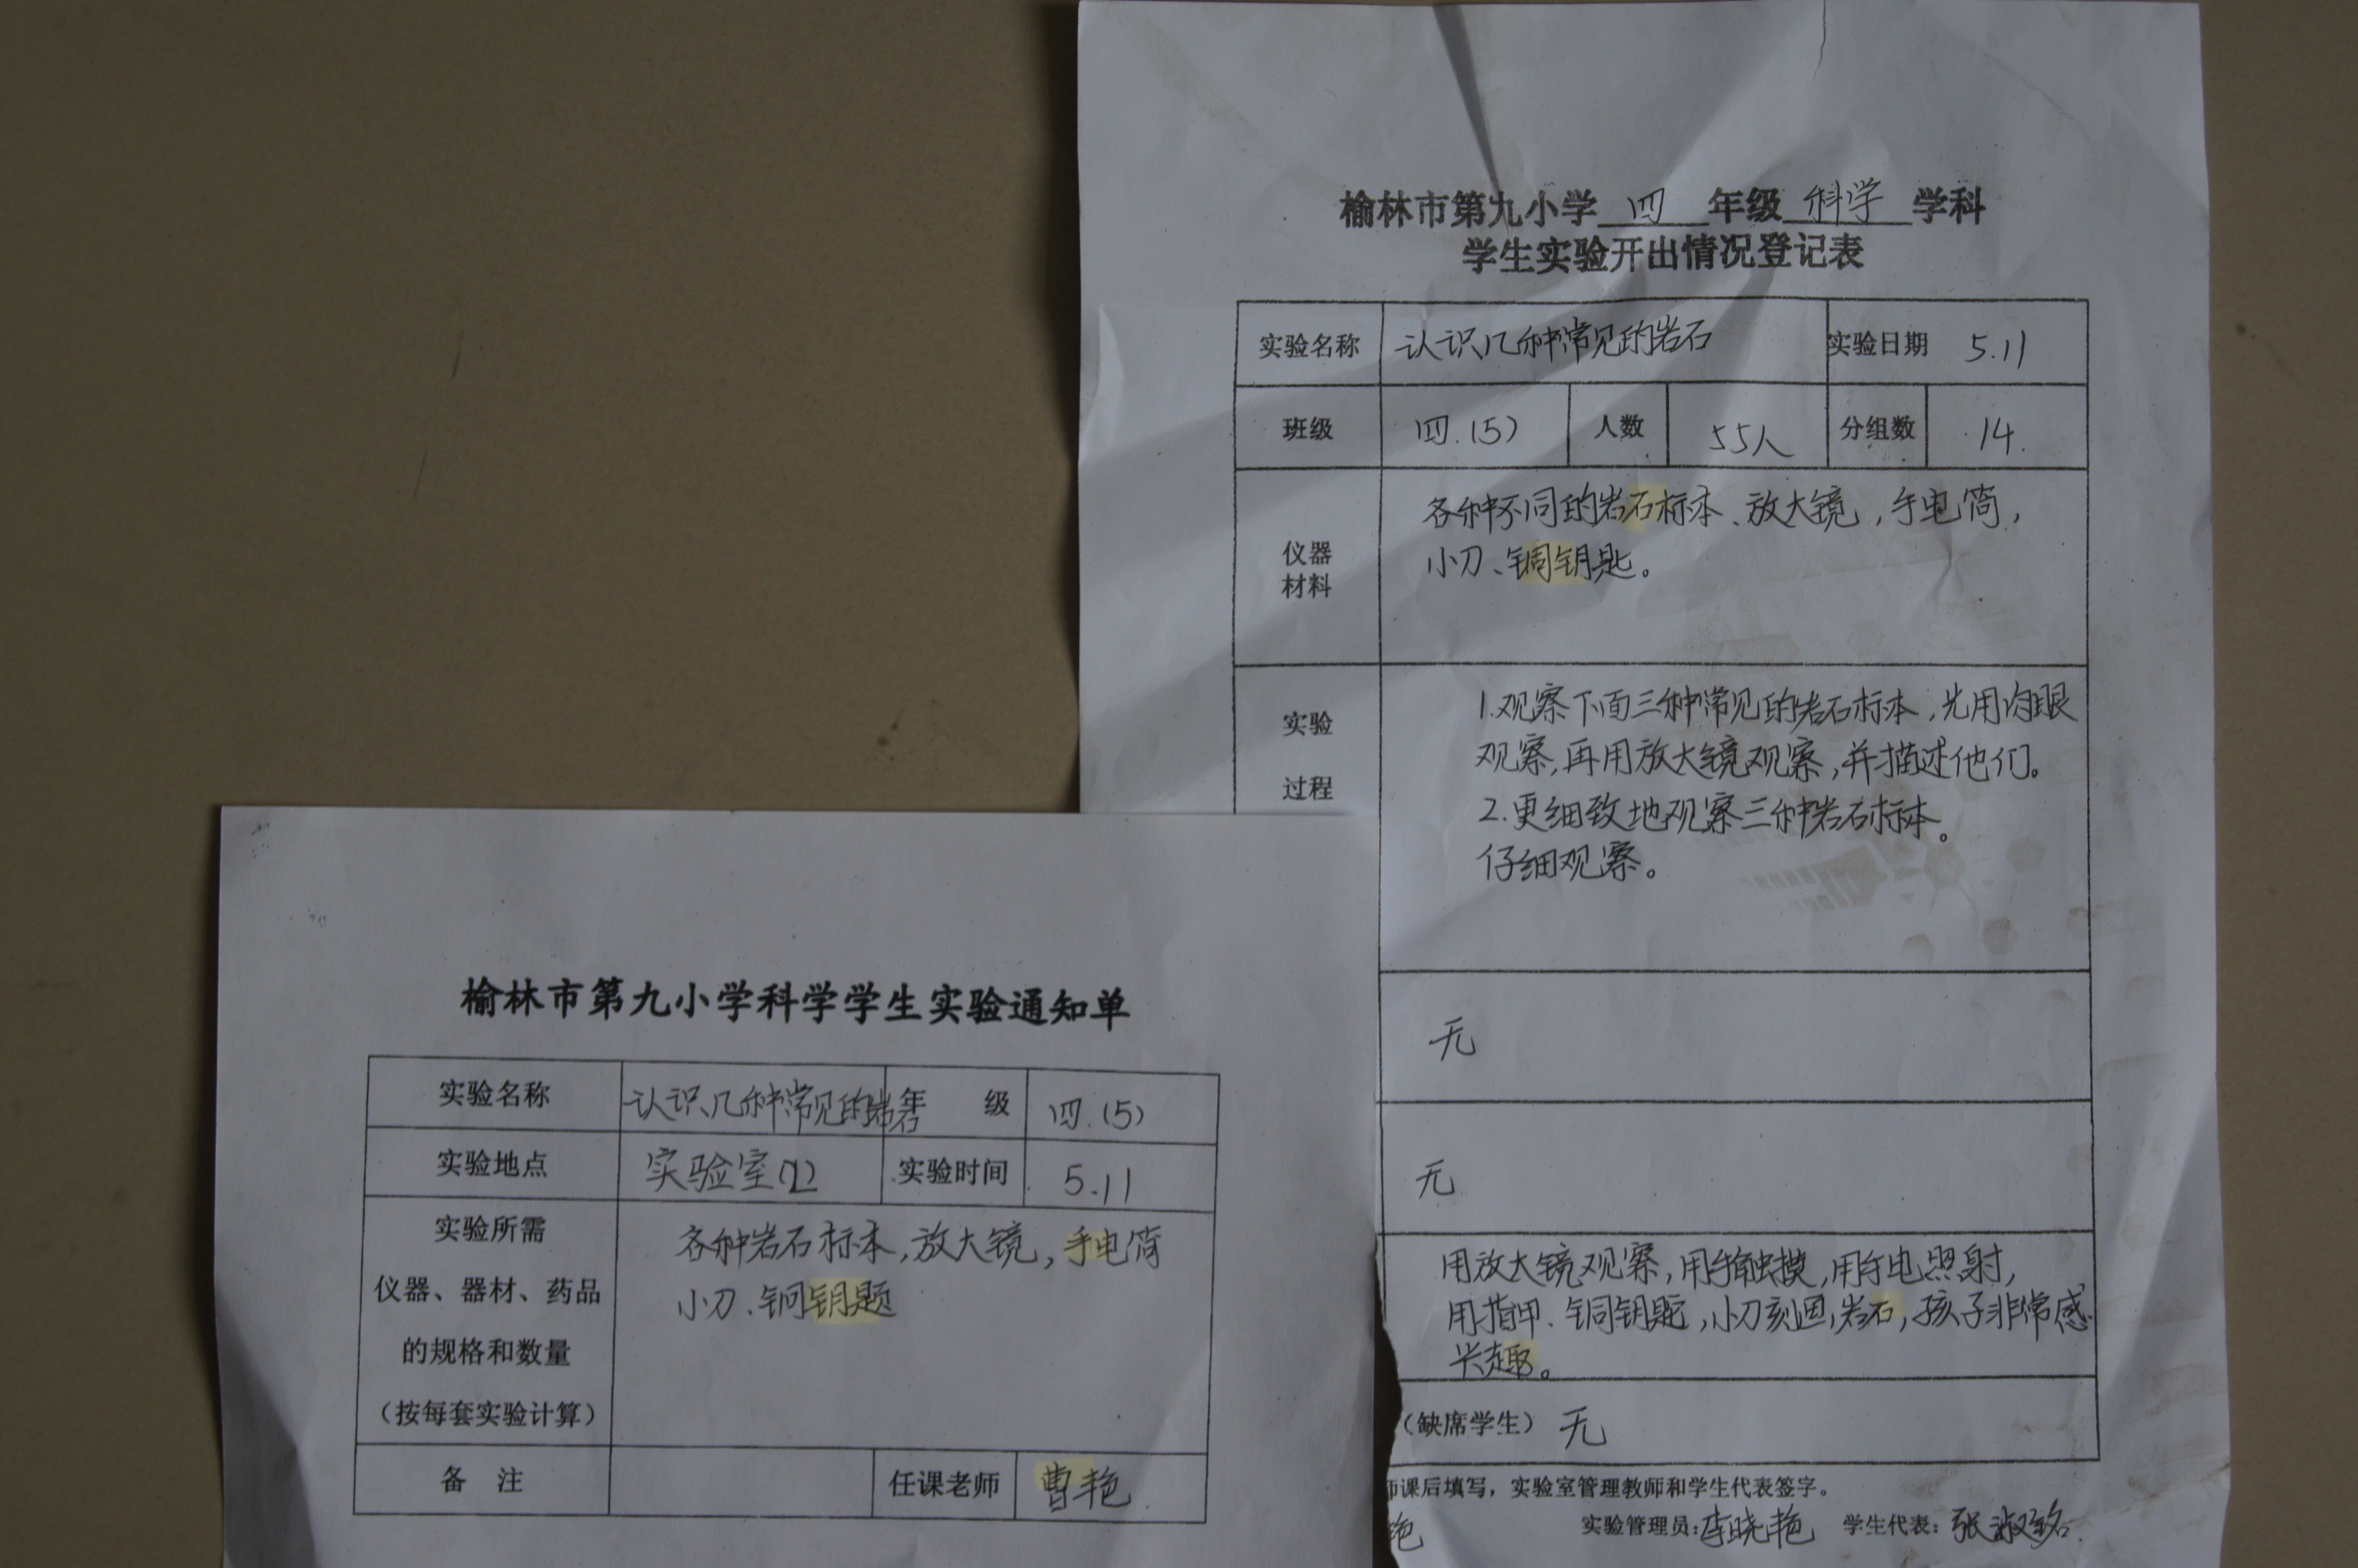 榆林市第九小学 四 年级 科学 学科
学生实验开出情况登记表
实验名称 认识几种常见的岩石 实验日期 5.11
班级 四.(5) 人数 55人 分组数 14.
仪器
材料
各种不同的岩石标本、放大镜,手电筒,
小刀、铜钥匙。
实验
过程
1.观察下面三种常见的岩石标本,先用肉眼
观察,再用放大镜观察,并描述他们。
2.更细致地观察三种岩石标本。
仔细观察。
无
无
用放大镜观察,用手触摸,用手电照射,
用指甲.铜钥匙,小刀刻画岩石,孩子非常感
兴趣。
(缺席学生) 无
师课后填写,实验室管理教师和学生代表签字。
艳 实验管理员:李晓艳 学生代表:张淑铭
榆林市第九小学科学学生实验通知单
实验名称 认识几种常见的岩石 年 级 四.(5)
实验地点 实验室 实验时间 5.11
实验所需
仪器、器材、药品
的规格和数量
(按每套实验计算)
各种岩石标本,放大镜,手电筒
小刀.铜钥
备 注 任课老师 曹艳